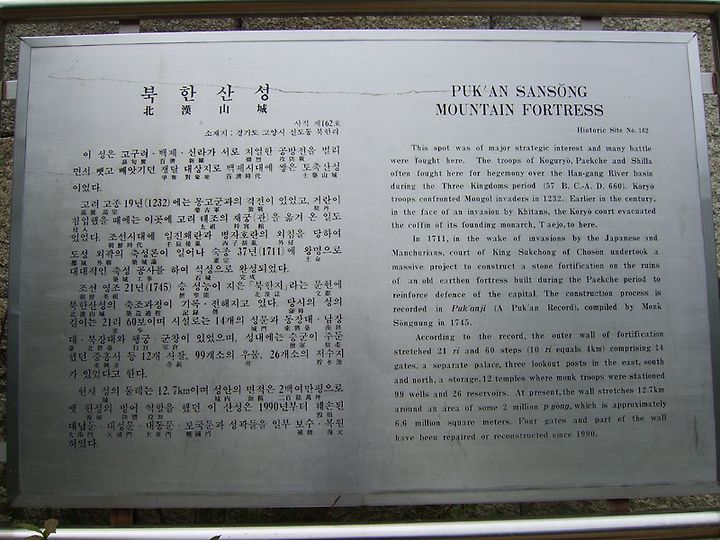 북 한 산 성
北 漢 山 城
사적 제162호
소재지 : 경기도 고양시 신도동 북한리
이 성은 고구려 · 백제 · 신라가 서로 치열한 공방전을 벌리
면서 뺏고 빼앗기던 쟁탈 대상지로 백제시대에 쌓은 토축산성
이었다.
고려 고종 19년(1232)에는 몽고군과의 격전이 있었고, 거란이
침입했을 때에는 이곳에 고려 태조의 재궁(관)을 옮겨 온 일도
있었다. 조선시대에 임진왜란과 병자호란의 외침을 당하여
도성 외곽의 축성론이 일어나 숙종 37년(1711)에 왕명으로
대대적인 축성 공사를 하여 석성으로 완성되었다.
조선 영조 21년(1745) 승 성능이 지은 「북한지」라는 문헌에
북한산성의 축조과정이 기록 · 전해지고 있다. 당시의 성의
길이는 21리 60보이며 시설로는 14개의 성문과 동장대 · 남장
대 · 북장대와 행궁 · 군창이 있었으며, 성내에는 승군이 주둔
했던 중흥사 등 12개 사찰, 99개소의 우물, 26개소의 저수지
가 있었다고 한다.
현재 성의 둘레는 12.7km이며 성안의 면적은 2백여만평으로
옛 한성의 방어 역할을 했던 이 산성은 1990년부터 훼손된
대남문 · 대성문 · 대동문 · 보국문과 성곽들을 일부 보수 · 복원
하였다.
PUK'AN SANSŎNG
MOUNTAIN FORTRESS
Historic Site No. 162
This spot was of major strategic interest and many battle
were fought here. The troops of Koguryŏ, Paekche and Shilla
often fought here for hegemony over the Han-gang River basin
during the Three Kingdoms period (57 B. C.-A. D. 660). Koryŏ
troops confronted Mongol invaders in 1232. Earlier in the century,
in the face of an invasion by Khitans, the Koryŏ court evacuated
the coffin of its founding monarch, T'aejo, to here.
In 1711, in the wake of invasions by the Japanese and
Manchurians, court of King Sukchong of Chosŏn undertook a
massive project to construct a stone fortification on the ruins
of an old earthen fortress built during the Paekche period to
reinforce defence of the capital. The construction process is
recorded in Puk'anji (A Puk'an Record), compiled by Monk
Sŏngnung in 1745.
According to the record, the outer wall of fortification
stretched 21 ri and 60 steps (10 ri equals 4km) comprising 14
gates, a separate palace, three lookout posts in the east, south
and north, a storage, 12 temples where monk troops were stationed
99 wells and 26 reservoirs. At present, the wall stretches 12.7km
around an area of some 2 million p'yŏng, which is approximately
6.6 million square meters. Four gates and part of the wall
have been repaired or reconstructed since 1990.